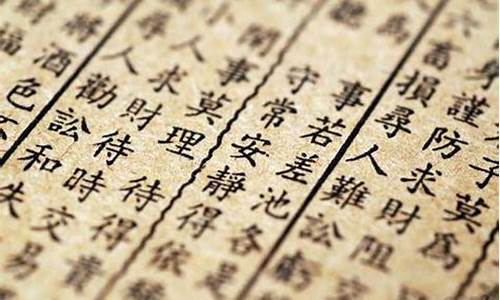 子莫為
謹防求財阻
六畜損尋人難訟虧
事若差池各是
守常安靜得依
開事莫理待得貴
人求財待時交易
人勸訟和失
酒色
福